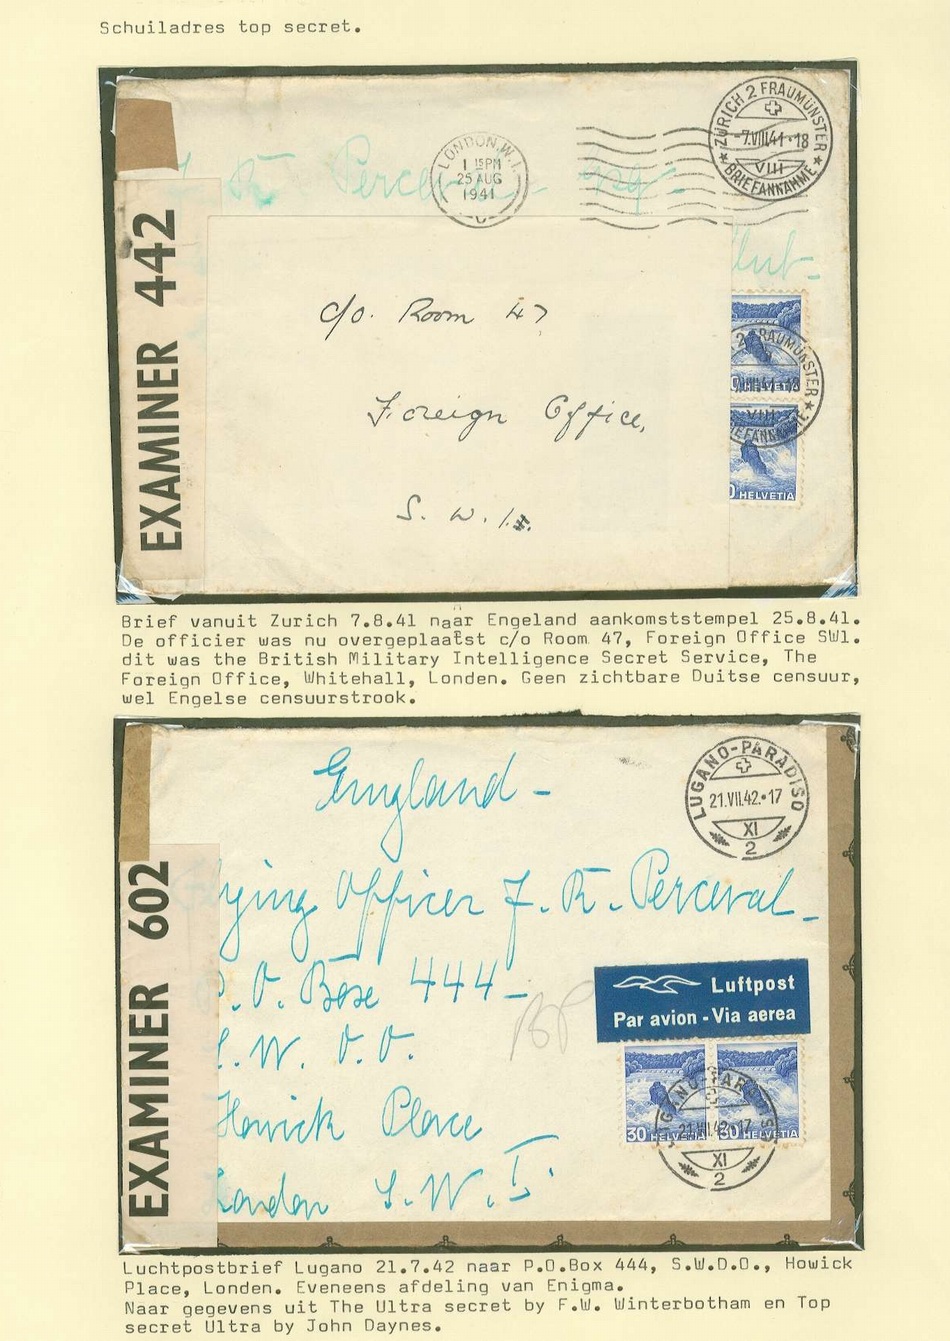 Schuiladres top secret.
ZÜRICH 2 FRAUMÜNSTER
-7.VIII.41·18
VIII
BRIEFANNAHME
LONDON.W.1
1 15PM
25 AUG
1941
C
Perceval
EXAMINER 442
c/o. Room 47
Foreign Office,
S. W. 1.
HELVETIA
Brief vanuit Zurich 7.8.41 naar Engeland aankomststempel 25.8.41.
De officier was nu overgeplaatst c/o Room 47, Foreign Office SW1.
dit was the British Military Intelligence Secret Service, The
Foreign Office, Whitehall, Londen. Geen zichtbare Duitse censuur,
wel Engelse censuurstrook.
LUGANO-PARADISO
21.VII.42.·17
XI
2
England -
ying Officer J. R. Perceval -
. O. Box 444 -
. W. D. O.
Howick Place
London S. W. 1.
BP
EXAMINER 602
Luftpost
Par avion - Via aerea
30 HELVETIA 30 HELVETIA
21.VII.42.·17
XI
2
Luchtpostbrief Lugano 21.7.42 naar P.O.Box 444, S.W.D.O., Howick
Place, Londen. Eveneens afdeling van Enigma.
Naar gegevens uit The Ultra secret by F.W. Winterbotham en Top
secret Ultra by John Daynes.